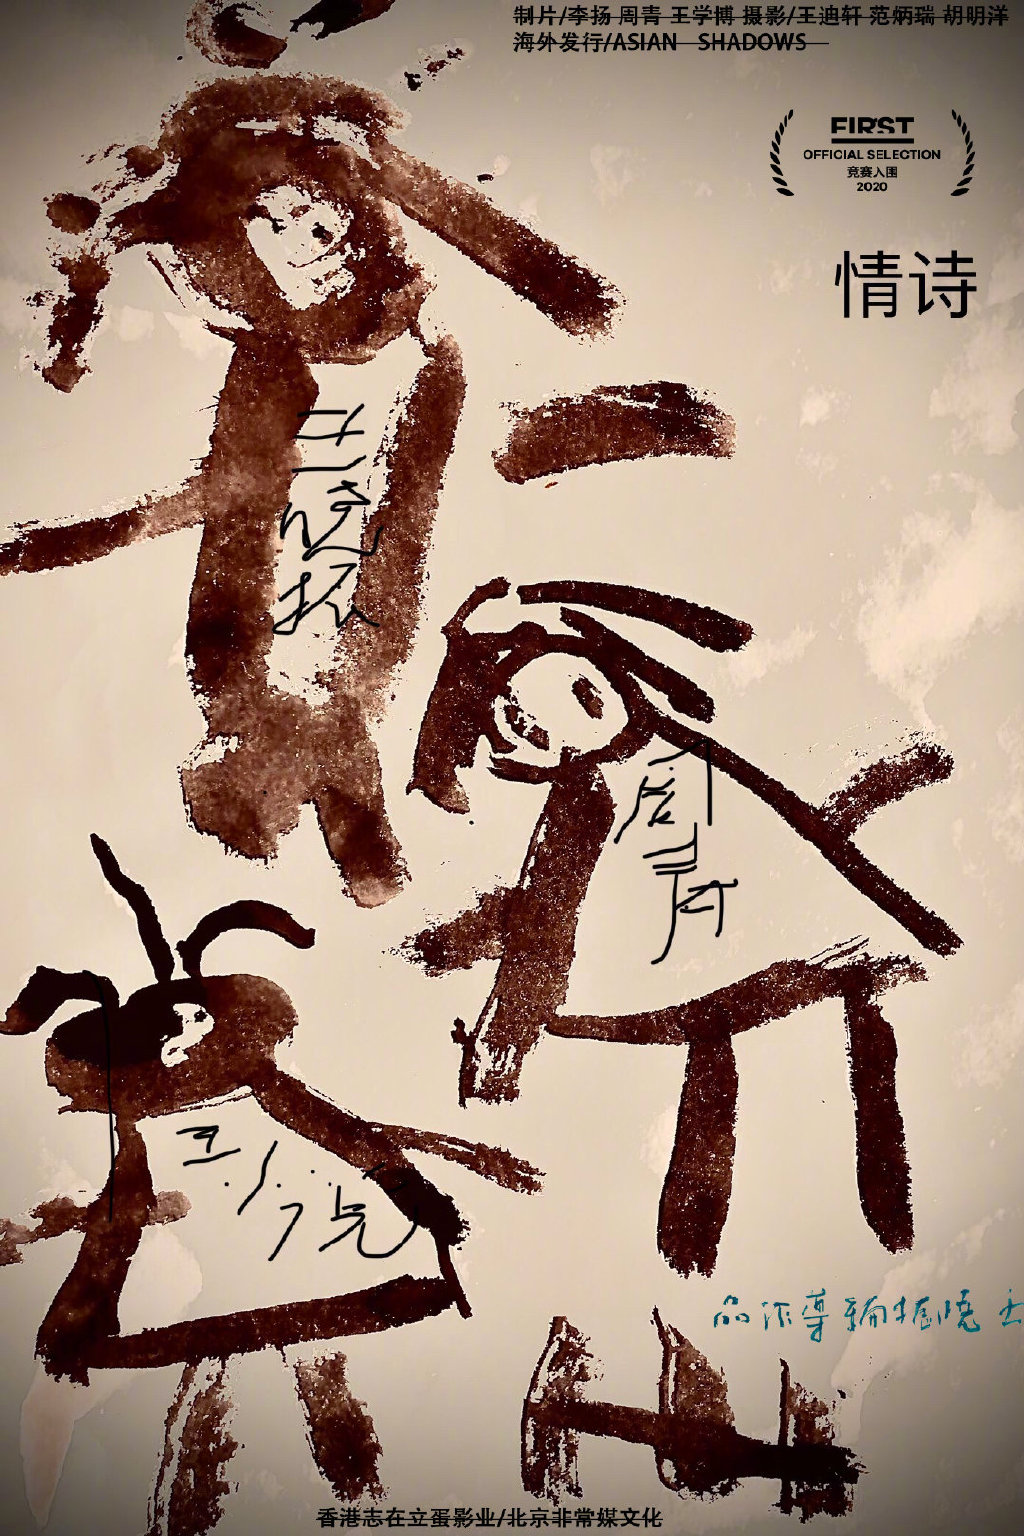 制片/李扬 周青 王学博 摄影/王迪轩 范炳瑞 胡明洋
海外发行/ASIAN SHADOWS
FIRST
OFFICIAL SELECTION
竞赛入围
2020
情诗
王晓振
周青
王小完
品作导编振晓王
香港志在立蛋影业/北京非常媒文化